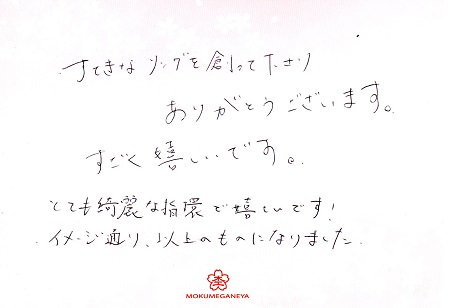 すてきなリングを創って下さり
ありがとうございます。
すごく嬉しいです。
とても綺麗な指環で嬉しいです!
イメージ通り、以上のものになりました。
MOKUMEGANEYA